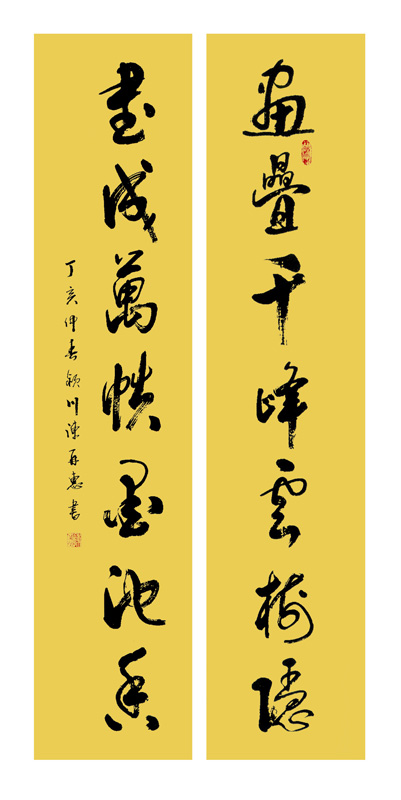 畫疊千峰雲樹隱
書成萬帙墨池香
丁亥仲春潁川陳再惠書